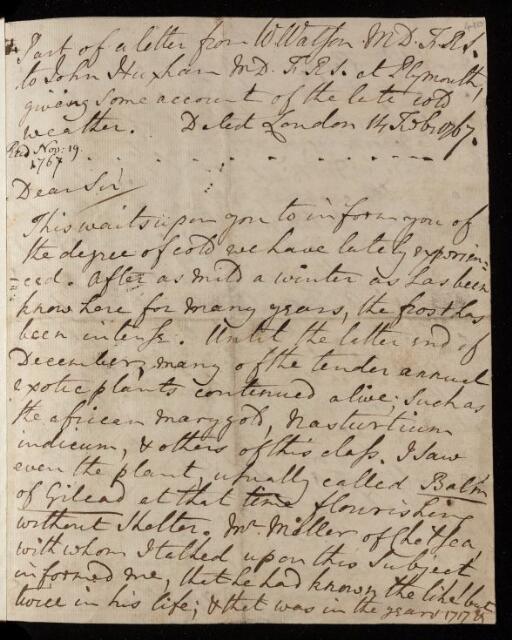 Part of a letter from W Watson M.D. F.R.S.
to John Huxham M.D. F.R.S. at Plymouth,
giving some account of the late cold
weather. Dated London 14 Feb. 1767.
Red Nov: 19.
1767
Dear Sir
This waits upon you to inform you of
the degree of cold we have lately experien=
=ced. After as mild a winter as has been
know here for many years, the frost has
been intense. Until the latter end of
December, many of the tender annual
exotic plants continued alive; such as
the african marygold, Nasturtium
indicum, & others of this class. I saw
even the plant, usually called Balm
of Gilead at that time flourishing
without shelter. Mr. Miller of Chelsea,
with whom I talked upon this Subject
informed me, that he had known the like but
twice in his life; & that was in the years 1717 &